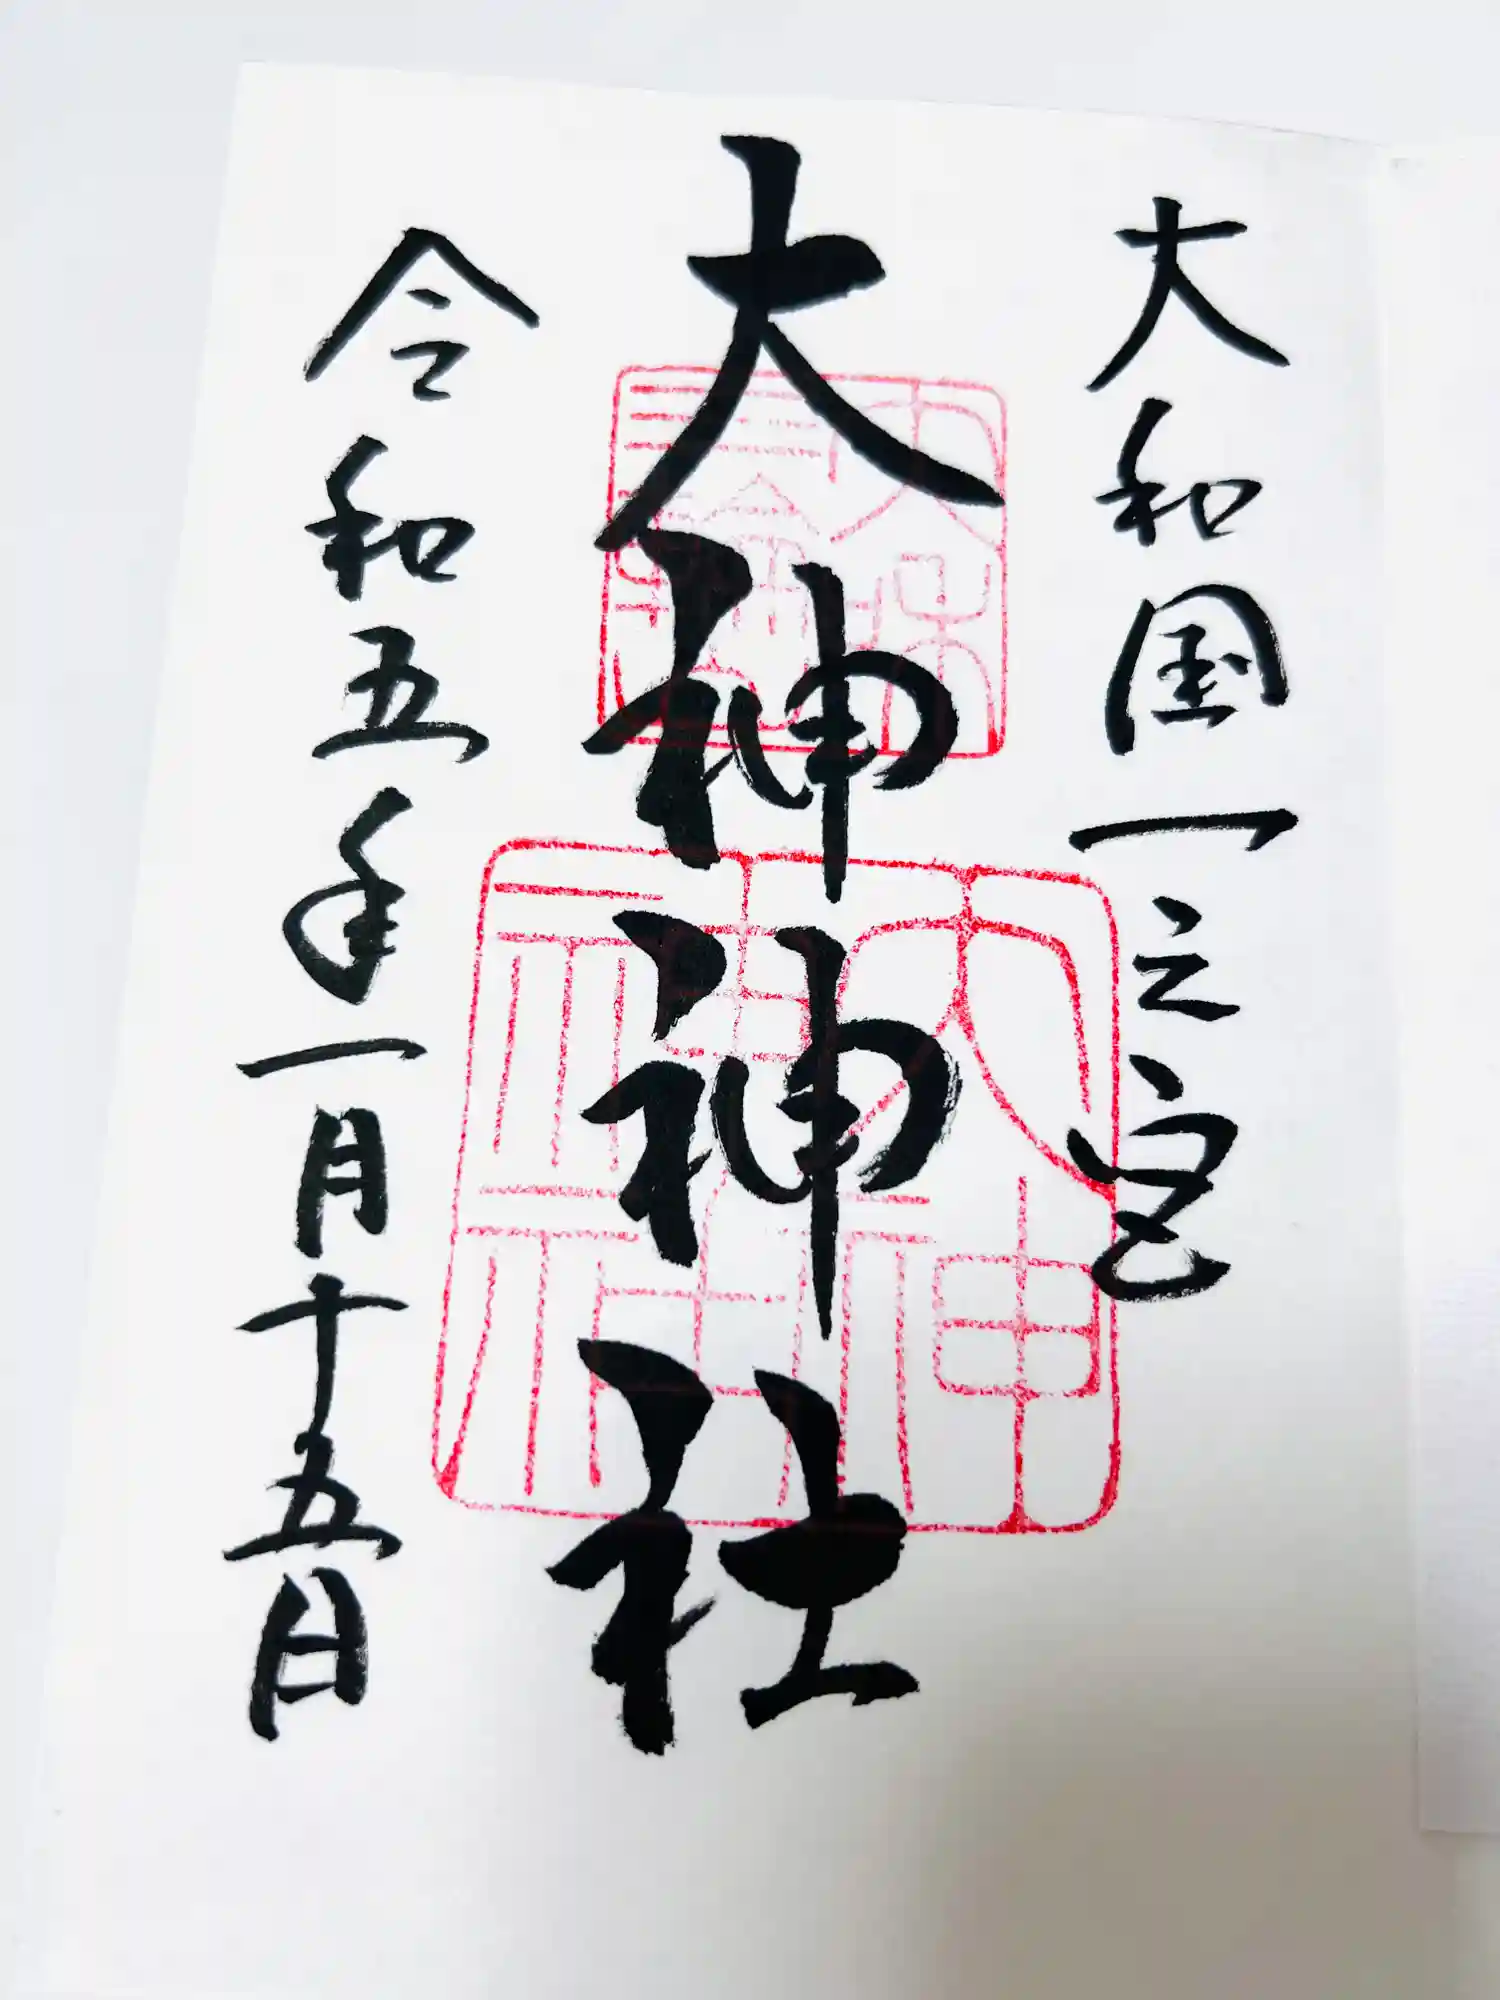 大和国一之宮
大神神社
令和五年一月十五日